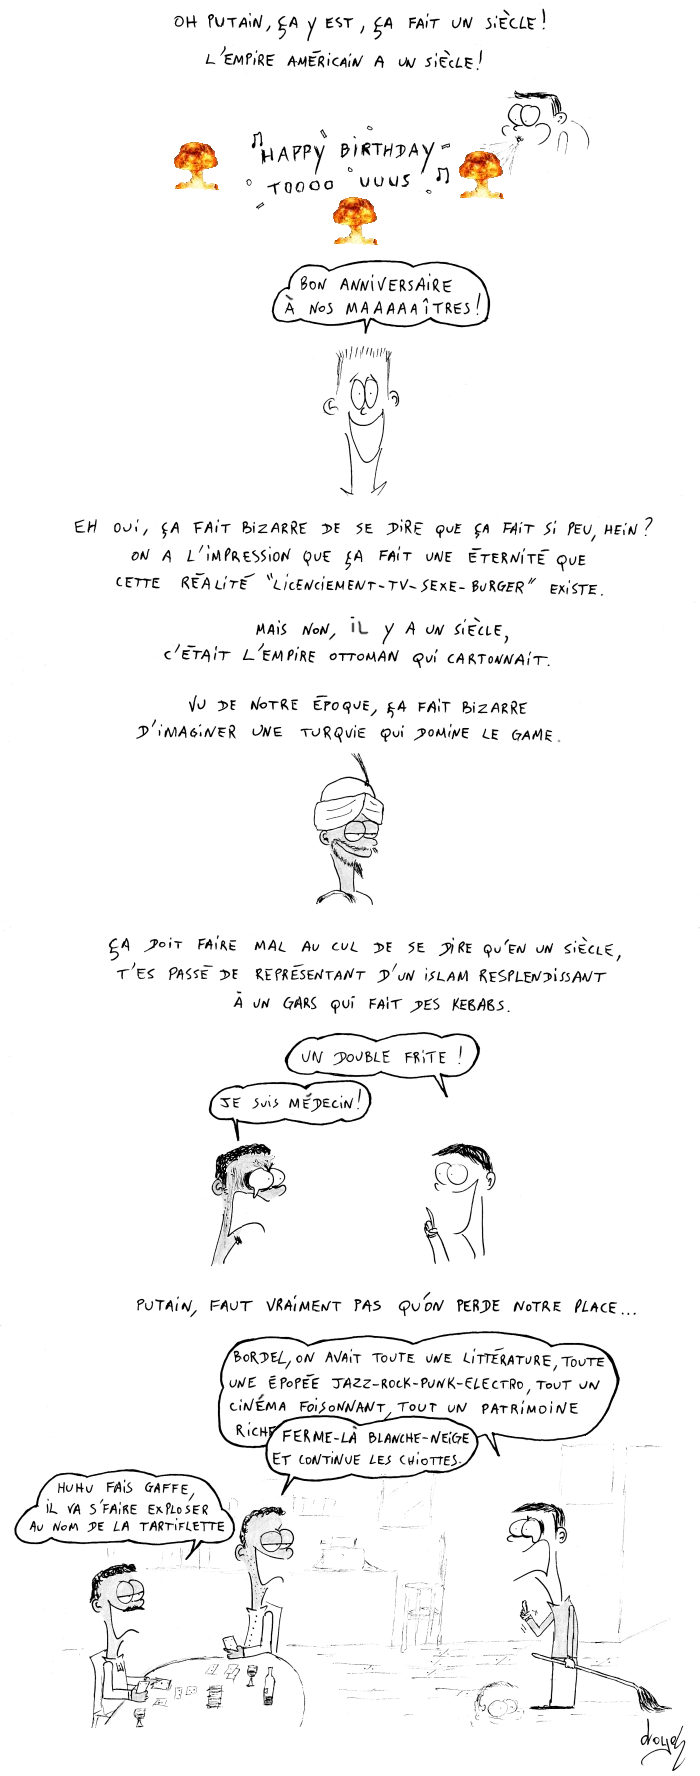 OH PUTAIN, ÇA Y EST, ÇA FAIT UN SIÈCLE!
L'EMPIRE AMÉRICAIN A UN SIÈCLE!
HAPPY BIRTHDAY
TOOOO UUUS
BON ANNIVERSAIRE
À NOS MAAAAAÎTRES!
EH OUI, ÇA FAIT BIZARRE DE SE DIRE QUE ÇA FAIT SI PEU, HEIN?
ON A L'IMPRESSION QUE ÇA FAIT UNE ÉTERNITÉ QUE
CETTE RÉALITÉ "LICENCIEMENT-TV-SEXE-BURGER" EXISTE.
MAIS NON, IL Y A UN SIÈCLE,
C'ÉTAIT L'EMPIRE OTTOMAN QUI CARTONNAIT.
VU DE NOTRE ÉPOQUE, ÇA FAIT BIZARRE
D'IMAGINER UNE TURQUIE QUI DOMINE LE GAME.
ÇA DOIT FAIRE MAL AU CUL DE SE DIRE QU'EN UN SIÈCLE,
T'ES PASSÉ DE REPRÉSENTANT D'UN ISLAM RESPLENDISSANT
À UN GARS QUI FAIT DES KEBABS.
UN DOUBLE FRITE!
JE SUIS MÉDECIN!
PUTAIN, FAUT VRAIMENT PAS QU'ON PERDE NOTRE PLACE...
BORDEL, ON AVAIT TOUTE UNE LITTÉRATURE, TOUTE
UNE ÉPOPÉE JAZZ-ROCK-PUNK-ELECTRO, TOUT UN
CINÉMA FOISONNANT, TOUT UN PATRIMOINE
RICHE
FERME-LÀ BLANCHE-NEIGE
ET CONTINUE LES CHIOTTES.
HUHU FAIS GAFFE,
IL VA S'FAIRE EXPLOSER
AU NOM DE LA TARTIFLETTE